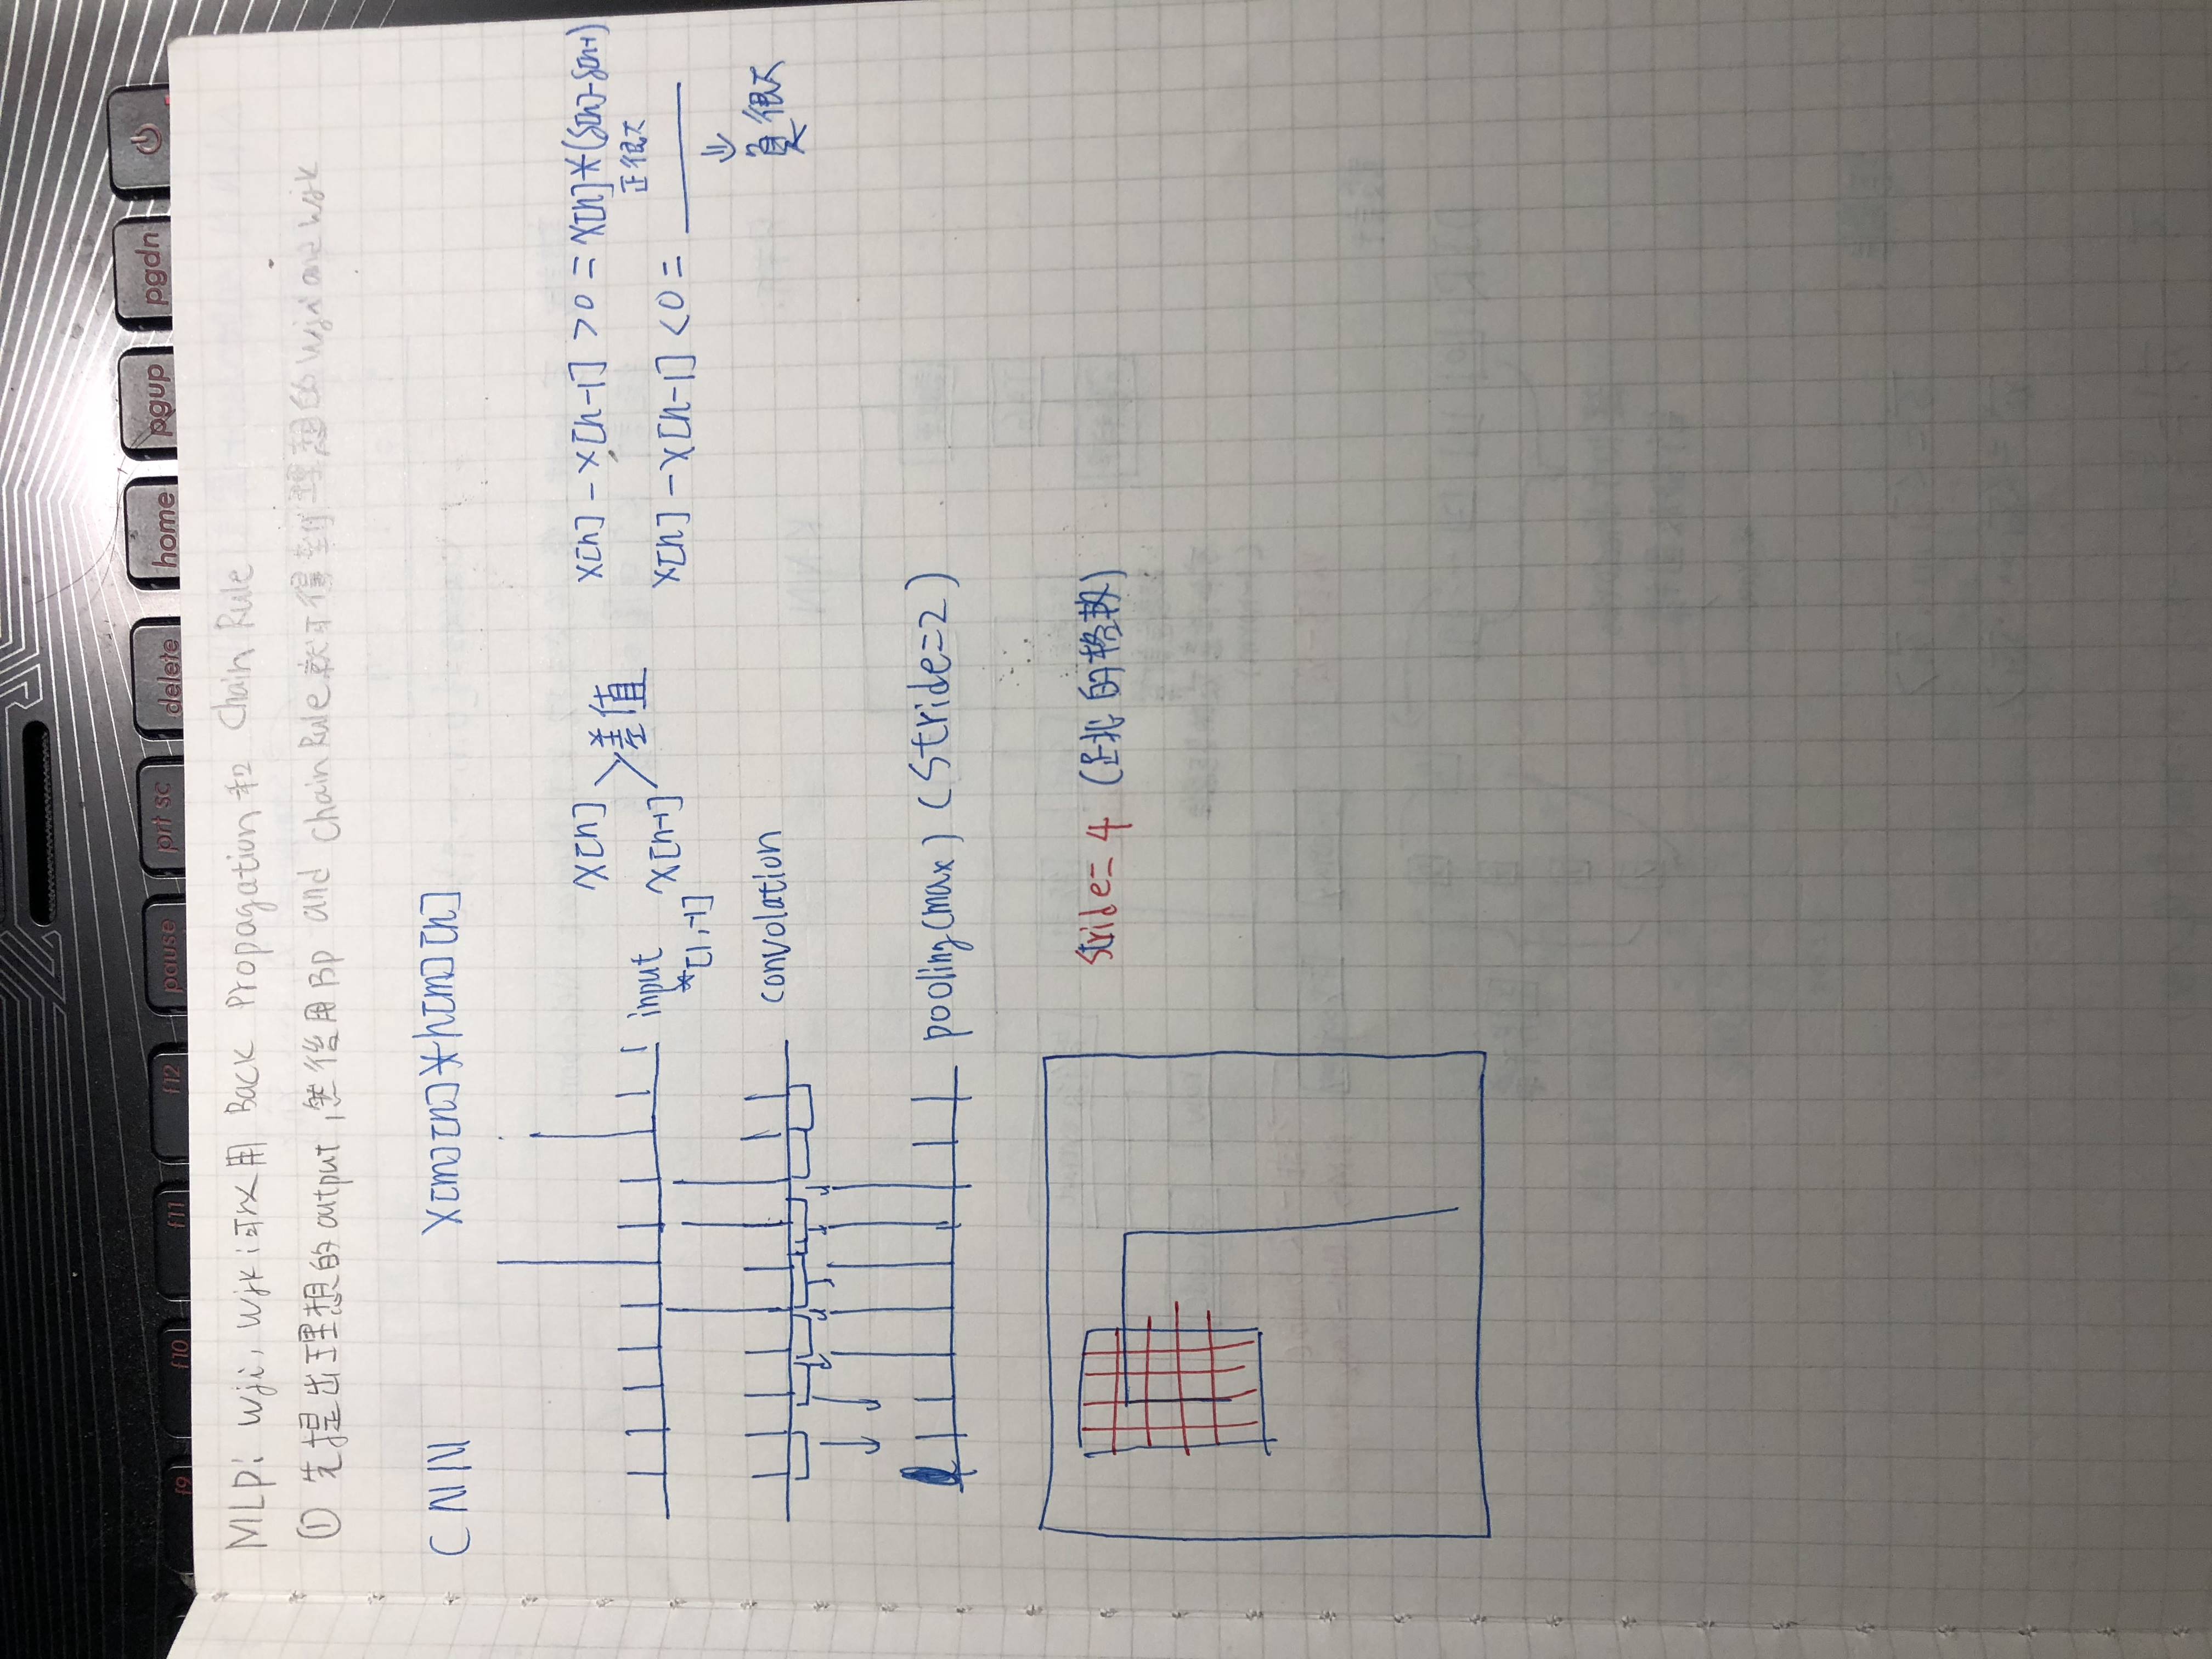 f9 f10 f11 f12 pause prt sc delete home pgup pgdn
MLP: wji, wjk 可以用 Back Propagation 和 Chain Rule
① 先提出理想的 output, 然後用 BP and Chain Rule 就可得到理想的 wji and wjk
CNN X[m][n]*h[m][n]
input
*[1,-1]
x[n]
x[n-1]
差值
x[n]-x[n-1]>0=x[n]*(δ[n]-δ[n-1)
正很大
x[n]-x[n-1]<0=
⇓
負很大
convolation
pooling(max) (Stride=2)
Stride=4 (的格数)